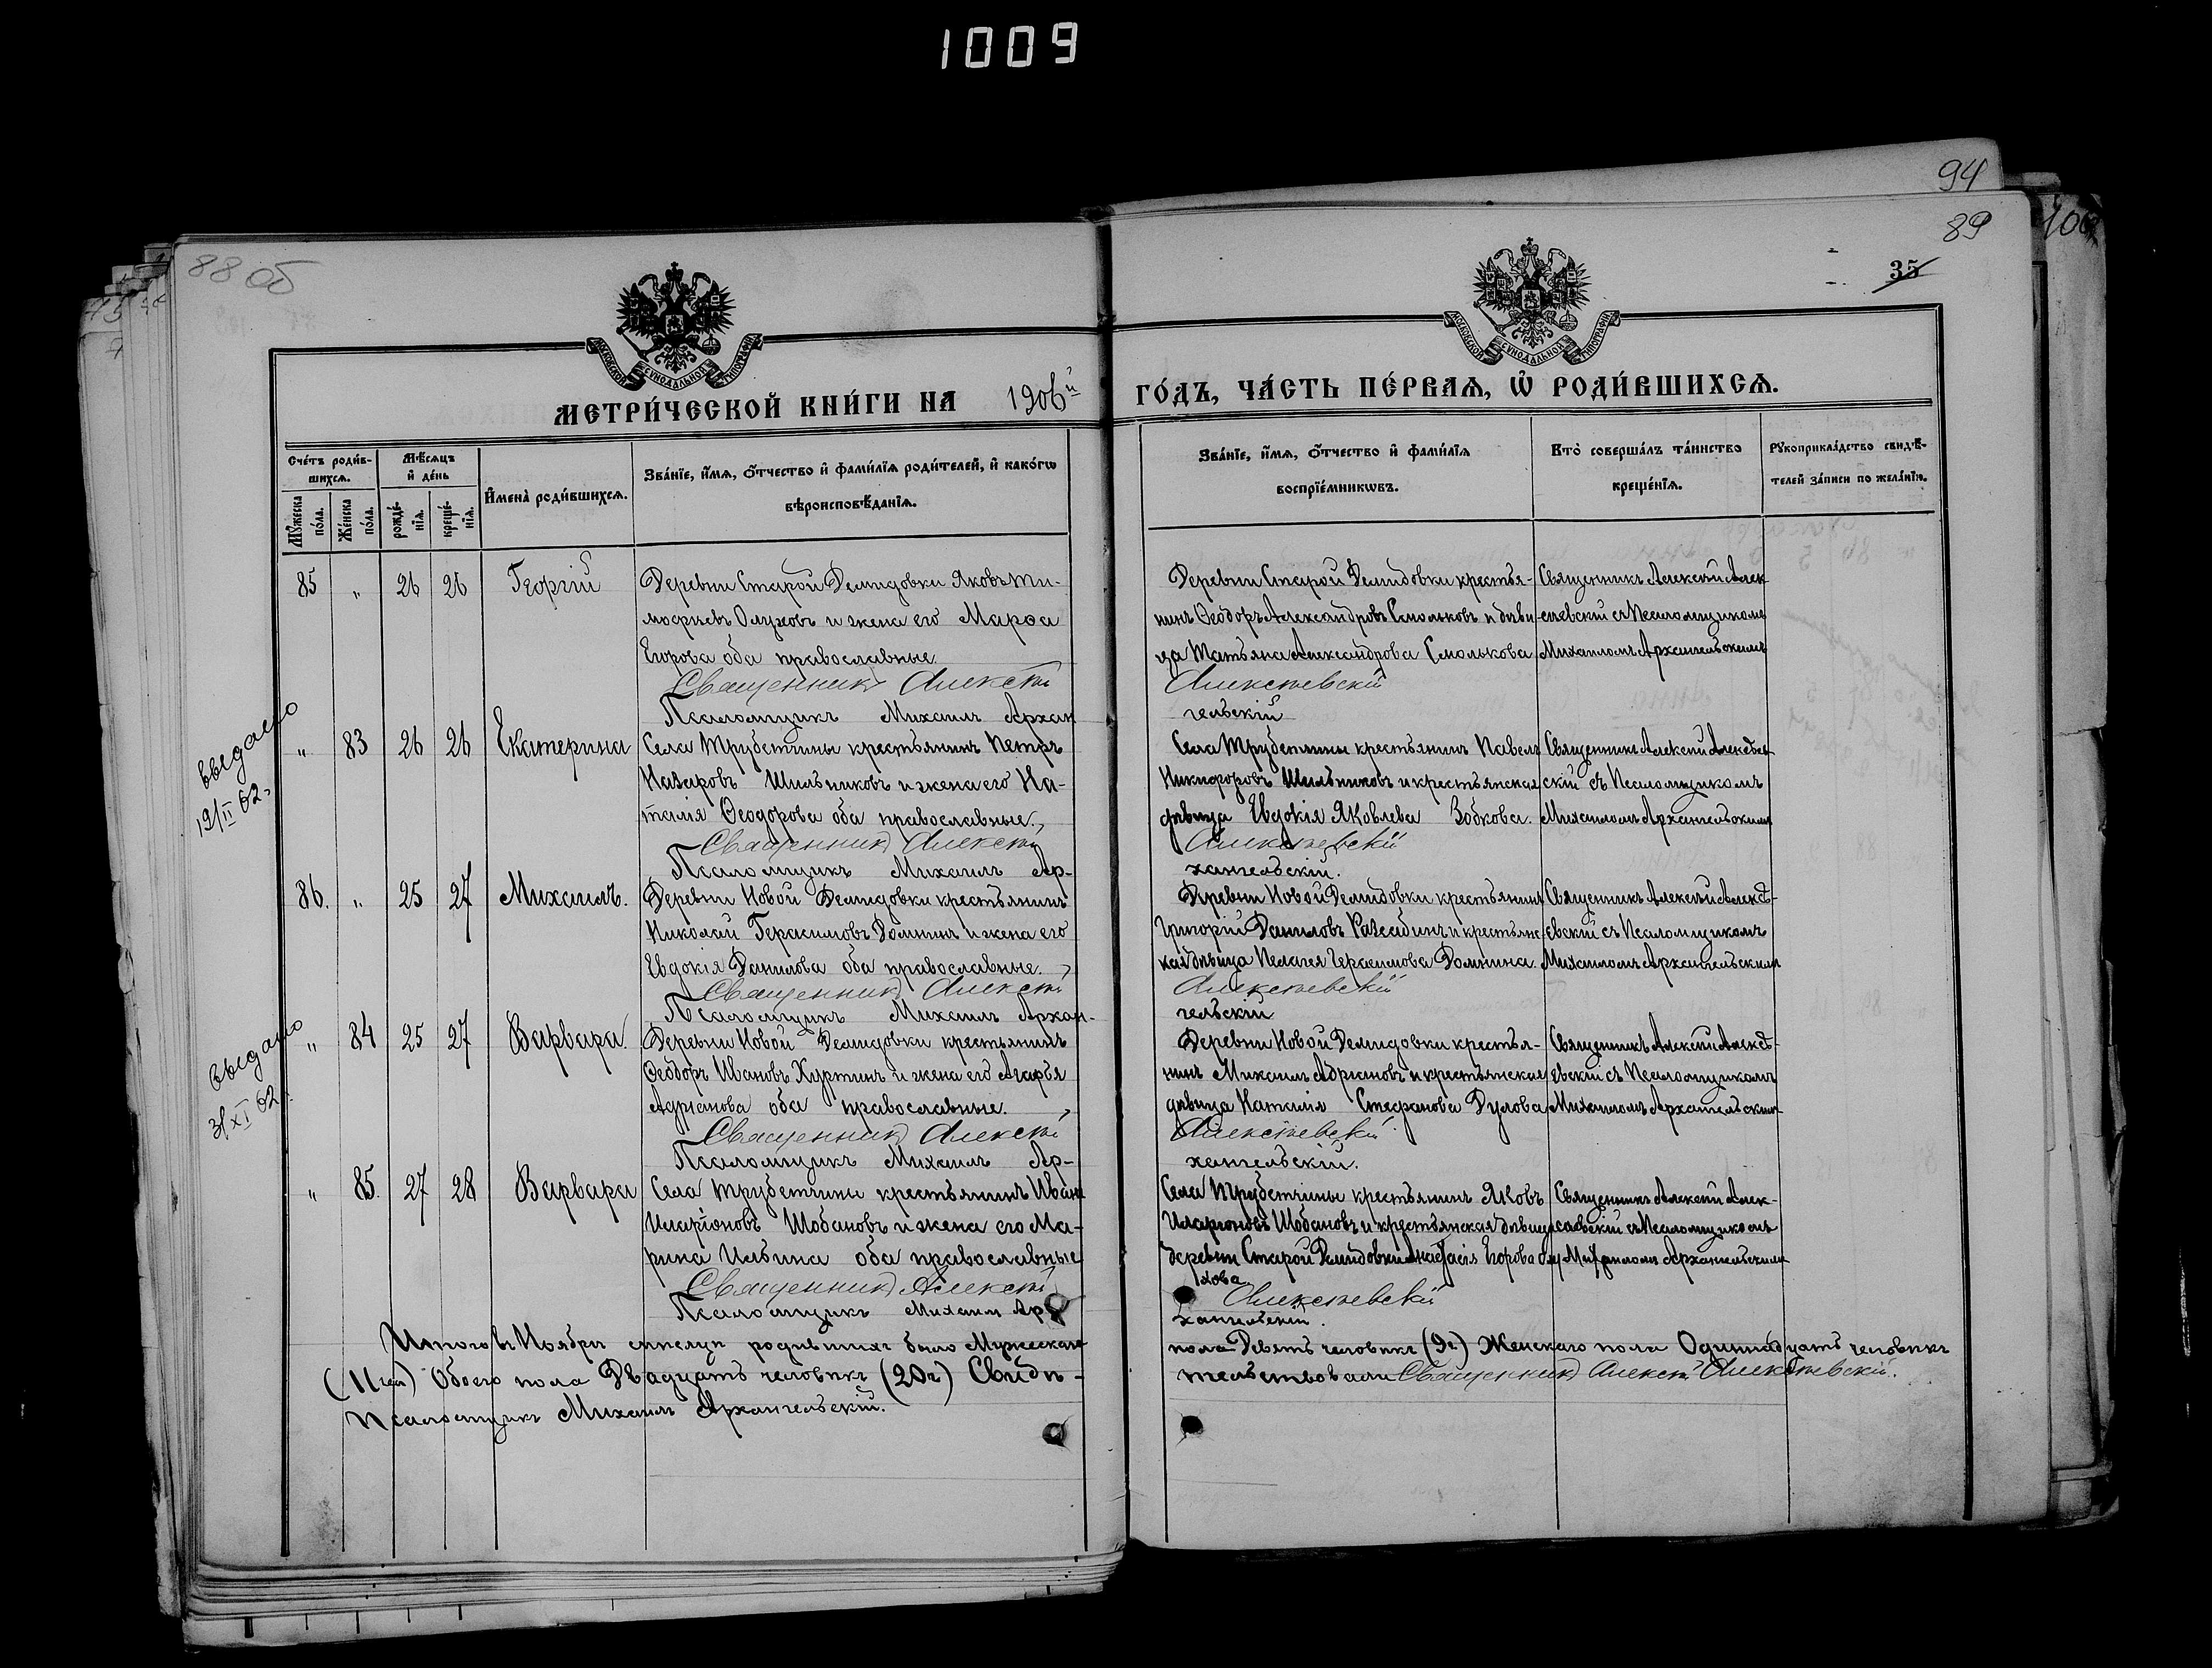 1009
94
89
100
88 об
35
МОСКОВСКОЙ СѴНОДАЛЬНОЙ ТИПОГРАФІИ
МОСКОВСКОЙ СѴНОДАЛЬНОЙ ТИПОГРАФІИ
МЕТРИ́ЧЕСКОЙ КНИ́ГИ НА 1906й ГО́ДЪ, ЧА́СТЬ ПЕ́РВАѦ, Ѡ҆ РОДИ́ВШИХСѦ.
Сче́тъ роди́в-
шихсѧ.
Мѣ́сѧцъ
и҆ де́нь
И҆мена̀ роди́вшихсѧ.
Зва́нїе, и҆́мѧ, ѻ҆́тчество и҆ фами́лїѧ роди́телей, и҆ како́гѡ
вѣроисповѣ́данїѧ.
Мꙋ́жеска
по́ла.
Же́нска
по́ла.
рожде́-
нїѧ.
креще́-
нїѧ.
Зва́нїе, и҆́мѧ, ѻ҆́тчество и҆ фами́лїѧ
воспрїе́мникѡвъ.
Кто̀ соверша́лъ та́инство
креще́нїѧ.
Рꙋкоприкла́дство свидѣ́-
телей за́писи по жела́нїю.
85 „ 26 26 Георгій Деревни Старой Демидовки Яковъ Ти-
мофѣевъ Олуховъ и жена его Марѳа
Егорова оба православные
Священникъ Алексѣй
Псаломщикъ Михаилъ Архан
Деревни Старой Демидовки крестья-
нинъ Ѳеодоръ Александровъ Смольковъ и дѣви-
ца Татьяна Александрова Смолькова
Алексѣевскій
гельскій
Священникъ Алексѣй Алек-
сѣевскій съ Псаломщикомъ
Михаиломъ Архангельскимъ
выдано
12/II 62.
„ 83 26 26 Екатерина Села Трубетчины крестьянинъ Петръ
Назаровъ Шильниковъ и жена его На-
талія Ѳеодорова оба православные.
Священникъ Алексѣй
Псаломщикъ Михаилъ Ар-
Села Трубетчины крестьянинъ Павелъ
Никифоровъ Шильниковъ и крестьянская
дѣвица Евдокія Яковлева Зобкова.
Алексѣевскій
хангельскій.
Священникъ Алексѣй Алексѣев-
скій съ Псаломщикомъ
Михаиломъ Архангельскимъ
86. „ 25 27 Михаилъ. Деревни Новой Демидовки крестьянинъ
Николай Герасимовъ Домнинъ и жена его
Евдокія Данилова оба православные.
Священникъ Алексѣй
Псаломщикъ Михаилъ Архан-
Деревни Новой Демидовки крестьянинъ
Григорій Даниловъ и крестьянс-
кая дѣвица Пелагея Герасимова Домнина.
Алексѣевскій
гельскій
Священникъ Алексѣй Алексѣ-
евскій съ Псаломщикомъ
Михаиломъ Архангельскимъ
выдано
3/XI 62 г.
„ 84 25 27 Варвара. Деревни Новой Демидовки крестьянинъ
Ѳеодоръ Ивановъ Куртинъ и жена его Агафья
Адріанова оба православные.
Священникъ Алексѣй
Псаломщикъ Михаилъ Ар-
Деревни Новой Демидовки крестья-
нинъ Михаилъ Адріановъ и крестьянская
дѣвица Наталія Стефанова Дулова
Алексѣевскій
хангельскій.
Священникъ Алексѣй Алексѣ-
евскій съ Псаломщикомъ
Михаиломъ Архангельскимъ
„ 85. 27 28 Варвара Села Трубетчины крестьянинъ Иванъ
Иларіоновъ Шобановъ и жена его Ма-
рина Ильина оба православные
Священникъ Алексѣй
Псаломщикъ Михаилъ Ар
Села Трубетчины крестьянинъ Яковъ
Иларіоновъ Шобановъ и крестьянская дѣвица
деревни Старой Демидовки Анастасія Егорова Олу-
хова
Алексѣевскій
хангельскій.
Священникъ Алексѣй Алек-
сѣевскій съ Псаломщикомъ
Михаиломъ Архангельскимъ
Итого въ Ноябрѣ мѣсяцѣ родившихъ было Мужескаго пола Девять человѣкъ (9ч) Женскаго пола Одиннадцать человѣкъ
(11 чел) Обоего пола Двадцать человѣкъ (20ч) Свидѣ- тельствовали Священникъ Алексѣй Алексѣевскій.
Псаломщикъ Михаилъ Архангельскій.